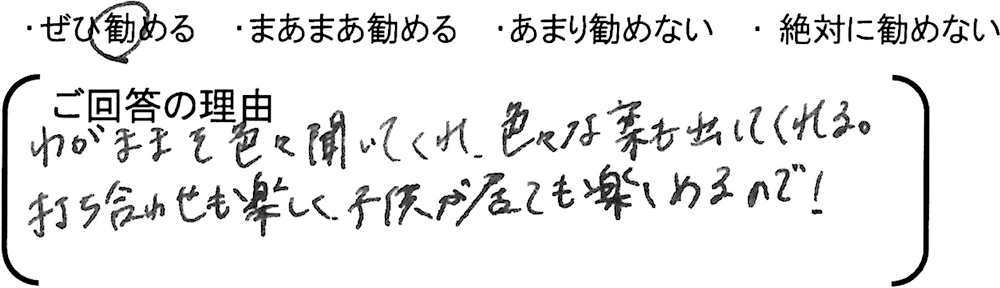 ・ぜひ勧める ・まあまあ勧める ・あまり勧めない ・絶対に勧めない
ご回答の理由
わがままを色々聞いてくれ、色々な案も出してくれる。
打ち合わせも楽しく、子供が居ても楽しめるので!